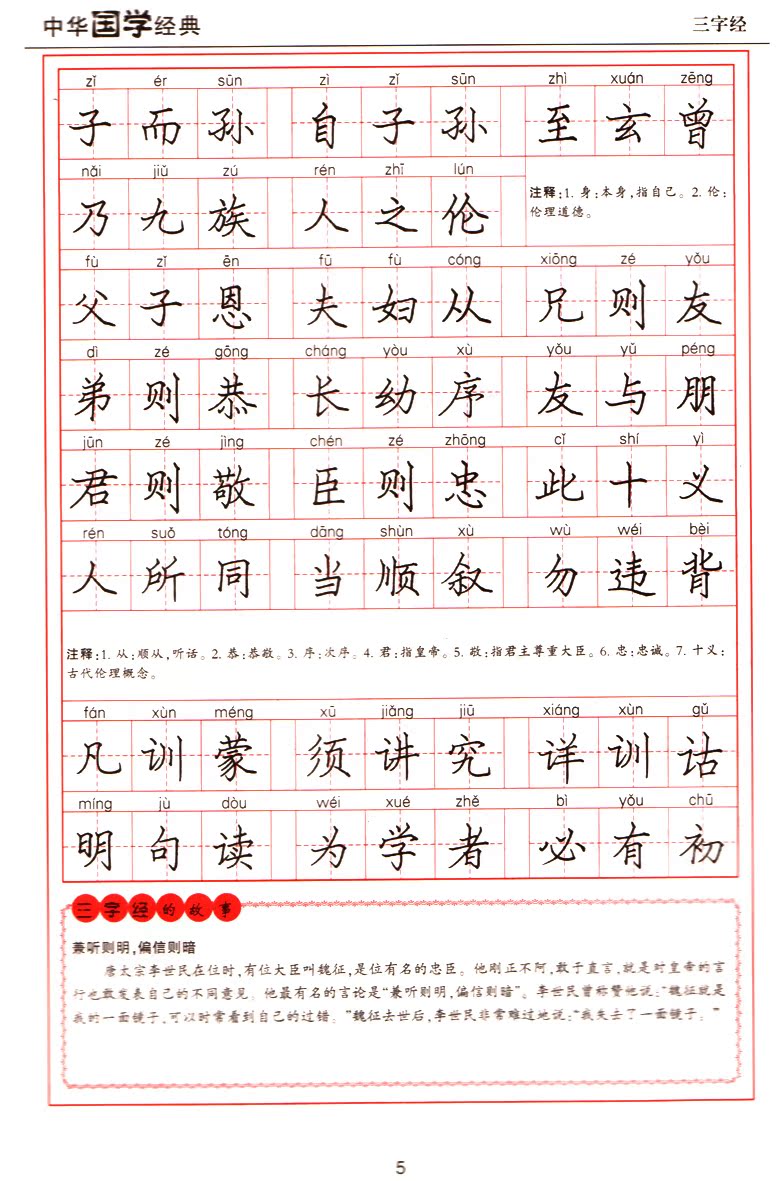 中华国学经典 三字经
zǐ ér sūn zì zǐ sūn zhì xuán zēng
子而孙 自子孙 至玄曾
nǎi jiǔ zú rén zhī lún
乃九族 人之伦
注释:1. 身:本身,指自己。2. 伦:
伦理道德。
fù zǐ ēn fū fù cóng xiōng zé yǒu
父子恩 夫妇从 兄则友
dì zé gōng cháng yòu xù yǒu yǔ péng
弟则恭 长幼序 友与朋
jūn zé jìng chén zé zhōng cǐ shí yì
君则敬 臣则忠 此十义
rén suǒ tóng dāng shùn xù wù wéi bèi
人所同 当顺叙 勿违背
注释:1. 从:顺从,听话。2. 恭:恭敬。3. 序:次序。4. 君:指皇帝。5. 敬:指君主尊重大臣。6. 忠:忠诚。7. 十义:
古代伦理概念。
fán xùn méng xū jiǎng jiū xiáng xùn gǔ
凡训蒙 须讲究 详训诂
míng jù dòu wéi xué zhě bì yǒu chū
明句读 为学者 必有初
三字经的故事
兼听则明,偏信则暗
唐太宗李世民在位时,有位大臣叫魏征,是位有名的忠臣。他刚正不阿,敢于直言,就是对皇帝的言
行也敢发表自己的不同意见。他最有名的言论是“兼听则明,偏信则暗”。李世民曾称赞他说:“魏征就是
我的一面镜子,可以时常看到自己的过错。”魏征去世后,李世民非常难过地说:“我失去了一面镜子。”
5